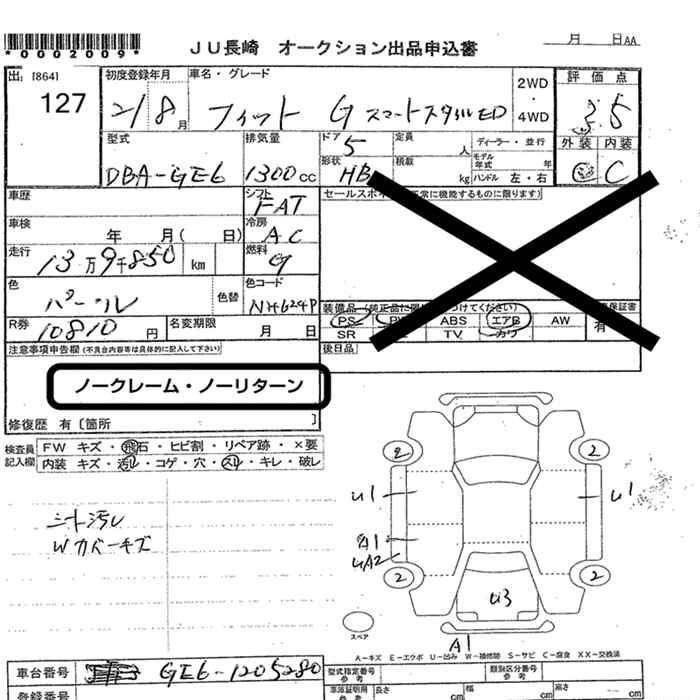 *0002009*
JU長崎 オークション出品申込書
月 日AA
出: [864]
127
初度登録年月
21/8月
車名・グレード
フィット G スマートスタイルED
2WD
・
4WD
評価点
3.5
型式
DBA-GE6
排気量
1300cc
ドア
5
定員
人
ディーラー・並行
形状
HB
積載
kg
モデル年式 年
ハンドル 左・右
外装 内装
C
車歴
シフト
FAT
車検
年 月( 日)
冷房
AC
走行
13万9千850 km
燃料
色
パール
色替
色コード
NH624P
R券
10810円
名変期限
月 日
セールスポ
常に機能するものに限ります)
装備品
つけてください)
保証書
PS
ABS
エアB
AW
有
SR
TV
カワ
後日品
注意事項申告欄(不具合内容等は具体的に記入して下さい)
ノークレーム・ノーリターン
修復歴 有〔箇所 〕
検査員
記入欄
FW キズ・飛石・ヒビ割・リペア跡・×要
内装 キズ・汚レ・コゲ・穴・スレ・キレ・破レ
シート汚レ
Wカバーキズ
2
2
U1
U1
A1
UA2
2
2
U3
スペア
A1
A-キズ E-エクボ U-凹み W-補修跡 S-サビ C-腐食 XX-交換済
車台番号
GE6-1205280
登録番号
型式指定番号
参考
類別区分番号
参考
車庫証明用
参考
長さ
cm
幅
cm
高さ
cm